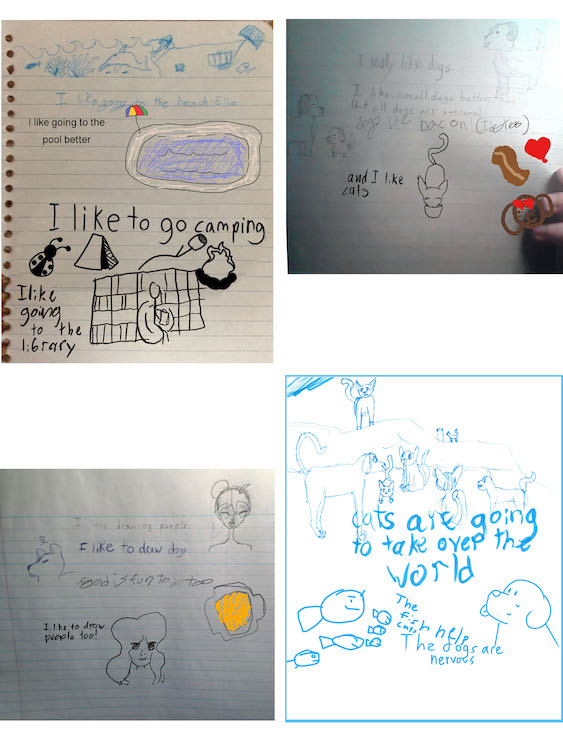 I like going to the beach-Ellie
I like going to the
pool better
I like to go camping
I like
going
to the
library
I really like dogs.
I like small dogs better
that all dogs are awesome
and I like
cats
I love drawing people
I like to draw dogs
is fun to too
I like to draw
people too!
cats are going
to take over the
world
The
fish help
cats
The dogs are
nervous